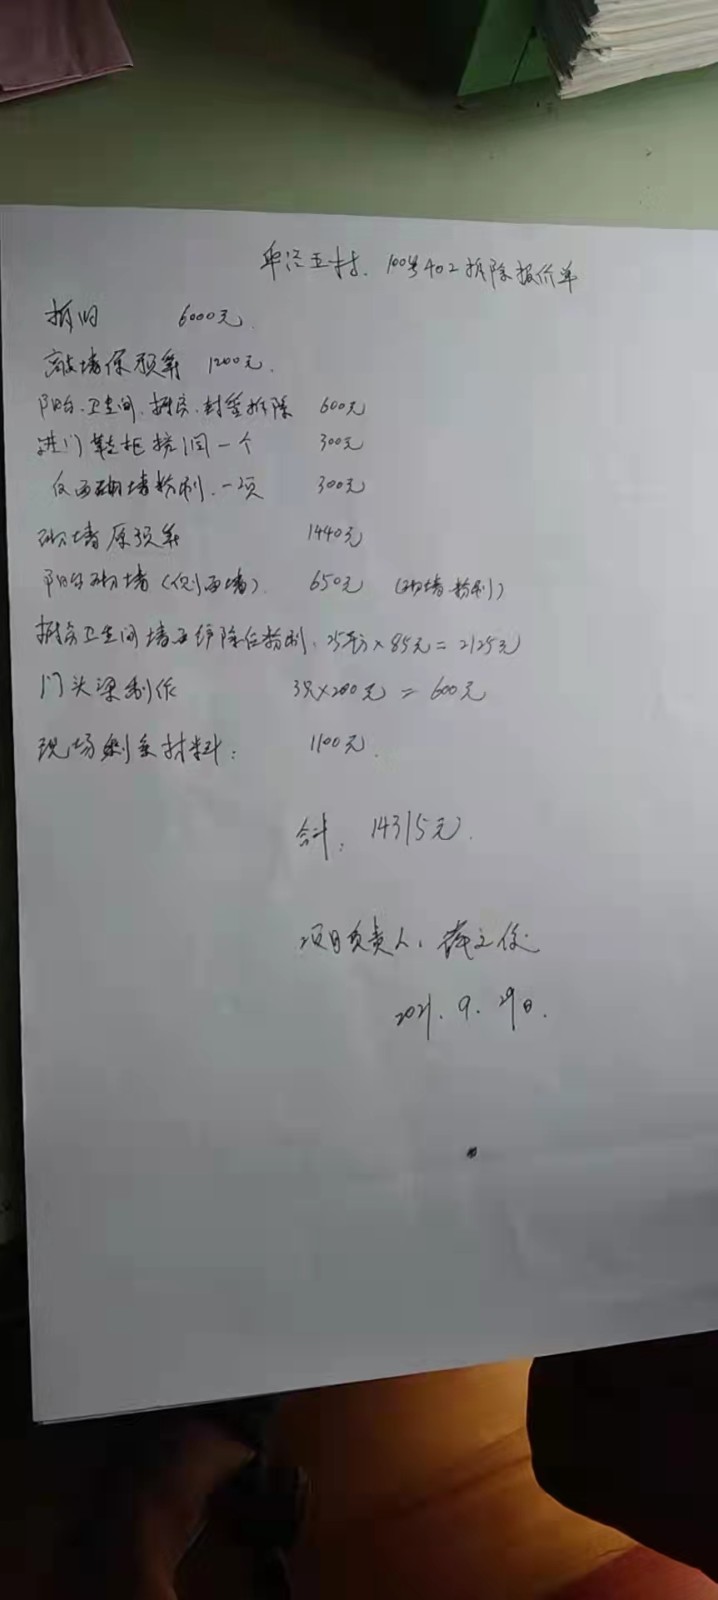 泾五村. 100号402拆除报价单
拆旧 6000元.
敲墙原预算 1200元.
阳台.卫生间.厨房.封管拆除 600元
进门鞋柜挖洞一个 300元
反面砌墙粉刷.一项 300元
砌墙原预算 1440元
阳台砌墙(侧面墙). 650元 (砌墙.粉刷)
厨房卫生间墙面铲除后粉刷.25平方×85元=2125元
门头梁制作 3只×200元=600元
现场剩余材料: 1100元.
合计: 14315元.
项目负责人:
2021.9.29日.